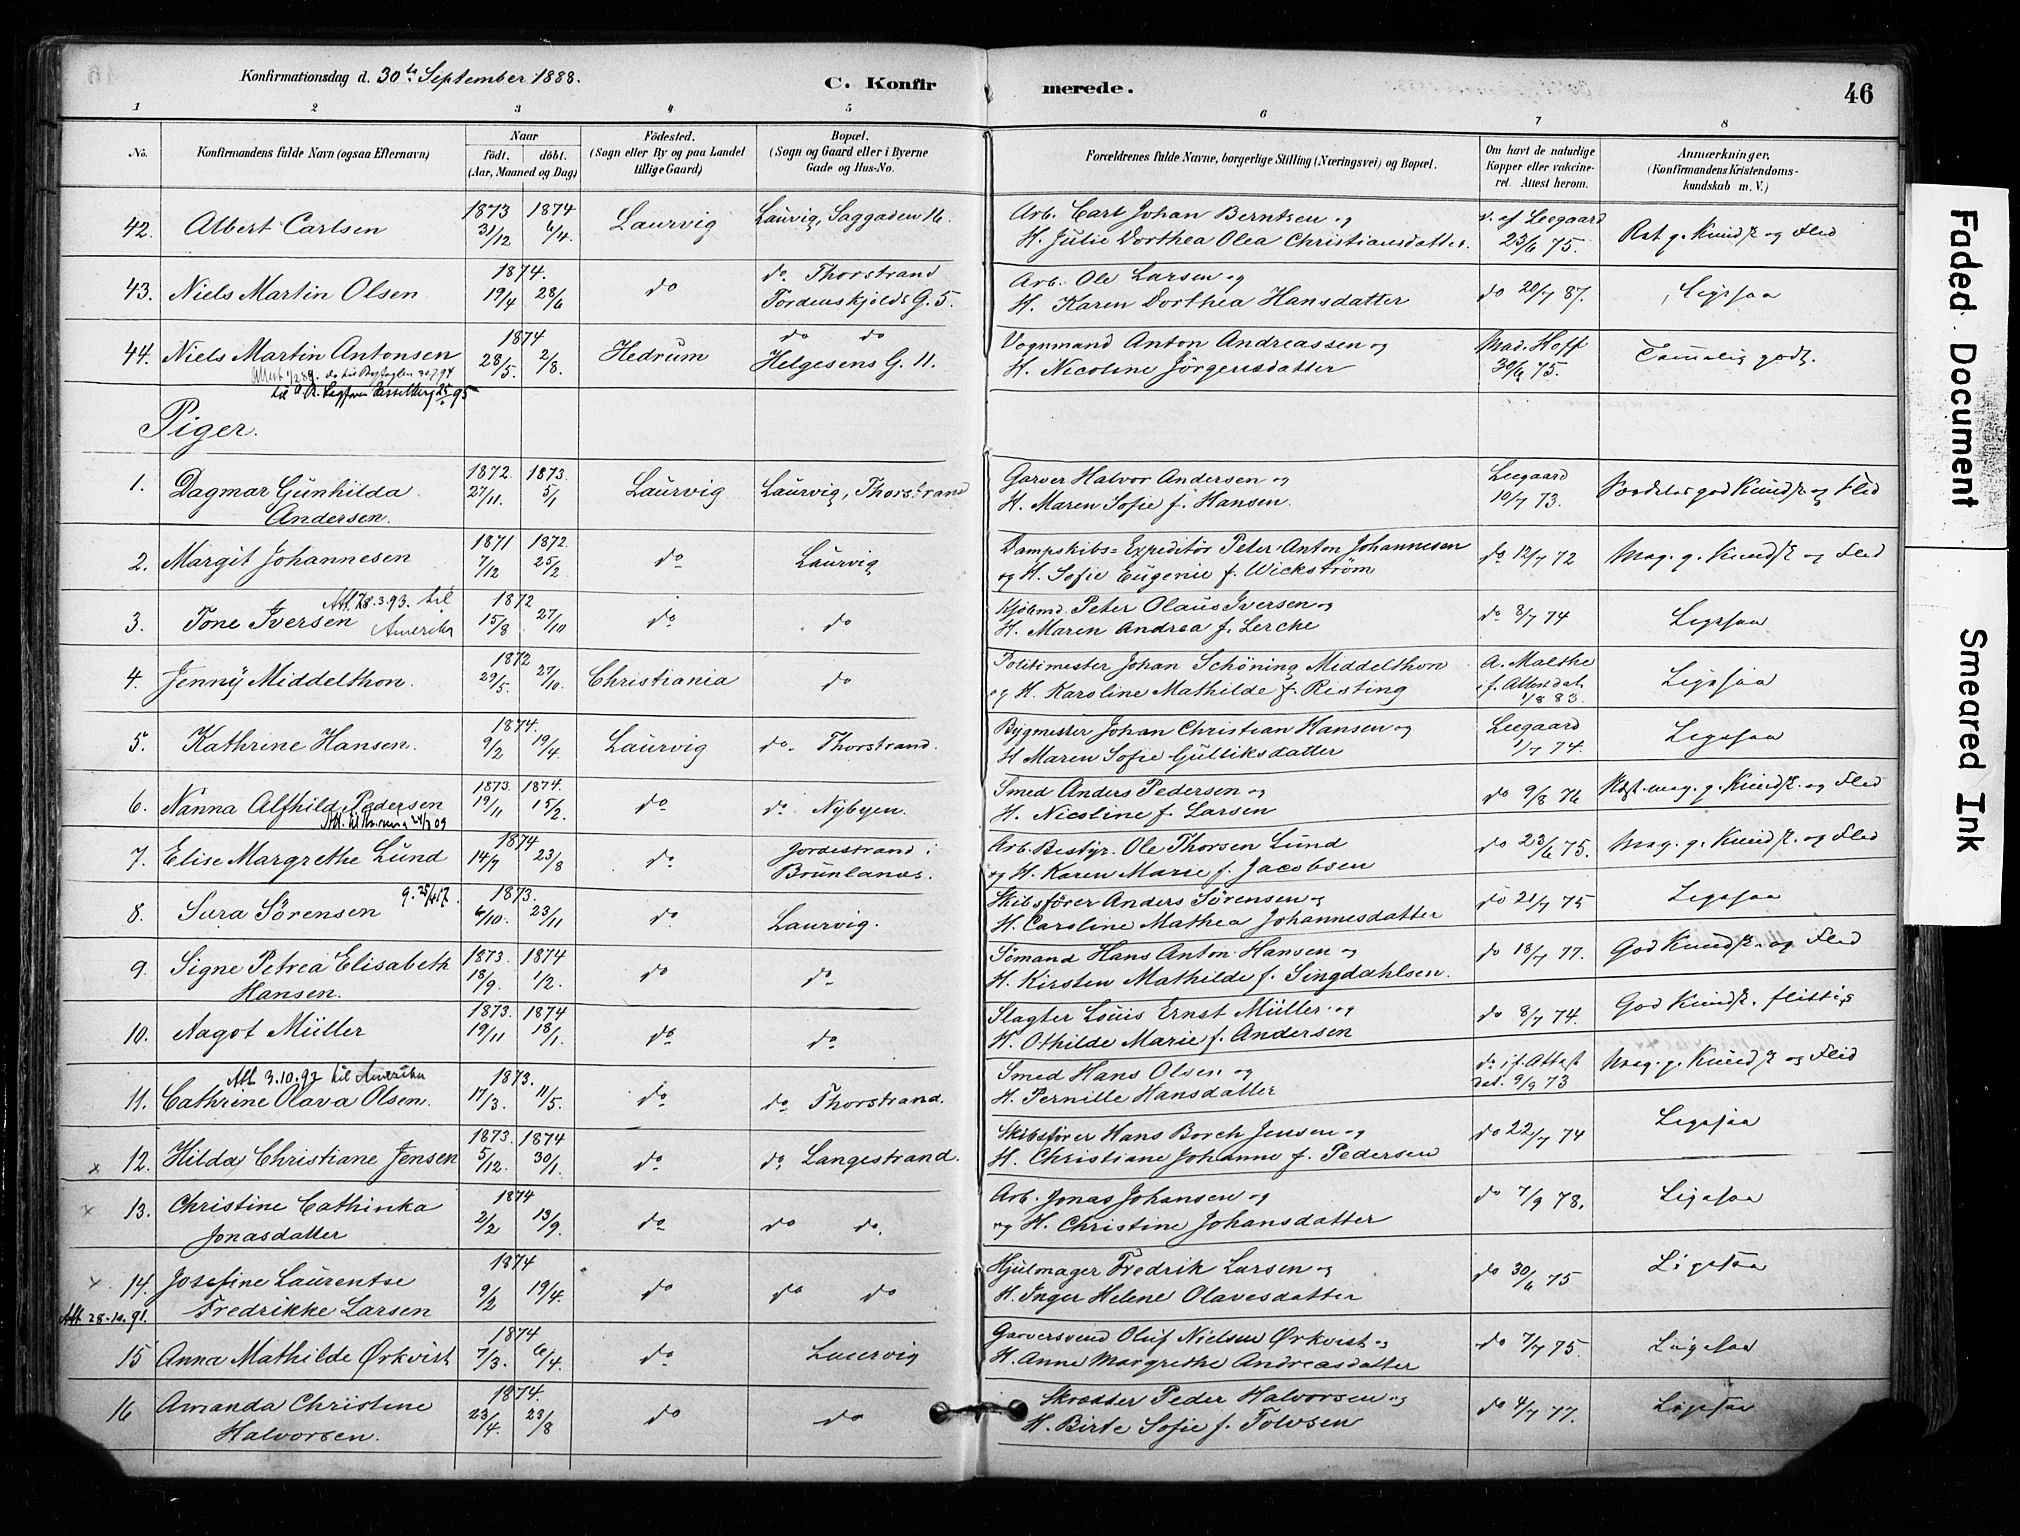 Konfirmationsdag d. 30te September 1888.
C. Konfirmerede.
46
1 2 3 4 5 6 7 8
No.
Konfirmandens fulde Navn (ogsaa Efternavn)
Naar
födt. döbt.
(Aar, Maaned og Dag)
Födested.
(Sogn eller By og paa Landet
tillige Gaard)
Bopæl.
(Sogn og Gaard eller i Byerne
Gade og Hus-No.
Forældrenes fulde Navne, borgerlige Stilling (Næringsvei) og Bopæl.
Om havt de naturlige
Kopper eller vakcine-
ret. Attest herom.
Anmærkninger,
(Konfirmandens Kristendoms-
kundskab m. V.)
42. Albert Carlsen 1873 31/12 1874 6/4. Laurvig Laurvig, Saggaden 16.
Arb. Carl Johan Berntsen og
H. Julie Dorthea Olea Christiansdatter.
v. af Leegaard
23/6 75.
43. Niels Martin Olsen 1874. 19/4 28/6 do do Thorstrand
Tordenskjolds G. 5.
Arb. Ole Larsen og
H. Karen Dorthea Hansdatter
do 20/7 87. Ligesaa
44. Niels Martin Antonsen 1874 28/5. 2/8. Hedrum do do
Helgesens G. 11.
Vognmand Anton Andreassen og
H. Nicoline Jörgensdatter
Mad. Hoff
30/6 75.
Temmelig godt.
Piger.
1. Dagmar Gunhilda
Andersen. 1872 27/11. 1873 5/1 Laurvig Laurvig, Thorstrand
Garver Halvor Andersen og
H. Maren Sofie f. Hansen.
Leegaard
10/7 73.
Særdeles god Kundsk. og Flid
2. Margit Johannesen 1871 7/12 1872. 25/2 do Laurvig
Dampskibs-Expeditör Peter Anton Johannesen
og H. Sofie Eugenie f. Wickström
do 12/7 72 Meg. g. Kundsk. og Flid
3. Tone Iversen Att. 28.3.93. til
Amerika 1872 15/8 27/10 do do
Kjöbmd. Peter Olaus Iversen og
H. Maren Andrea f. Lerche
do 8/7 74 Ligesaa
4. Jenny Middelthon. 1872 29/5. 27/10. Christiania do
Politimester Johan Schöning Middelthon
og H. Karoline Mathilde f. Risting
A. Malthe
i f. Attest dat.
1/8 83
Ligesaa
5. Kathrine Hansen. 1874. 9/2 19/4 Laurvig do. Thorstrand.
Bygmester Johan Christian Hansen og
H Maren Sofie Gulliksdatter
Leegaard
1/7 74.
Ligesaa
6. Nanna Alfhild Pedersen 1873. 19/11 1874. 15/2. do do. Nybyen.
Smed Anders Pedersen og
H. Nicoline f. Larsen
do 9/8 76 Næst. meg. g. Kundsk. og Flid
7. Elise Margrethe Lund 1874 14/7 23/8 do Jordestrand i
Brunlanæs.
Arb. Bestyr. Ole Thorsen Lund
og H. Karen Marie f. Jacobsen
do 23/6 75. Meg. g. Kundsk. og Flid
8. Sura Sörensen g. 25/4 17. 1873. 6/10. 23/11 do Laurvig.
Skibsförer Anders Sörensen og
H. Caroline Mathea Johannesdatter
do 21/7 75 Ligesaa
9. Signe Petrea Elisabeth
Hansen. 1873. 18/9. 1874 1/2. do do
Sömand Hans Anton Hansen og
H. Kirsten Mathilde f. Singdahlsen.
do 18/7 77. God Kundsk. og Flid
10. Aagot Müller 1873. 19/11 1874 18/1. do do
Slagter Louis Ernst Müller og
H. Othilde Marie f. Andersen
do 8/7 74. God Kundsk. flittig
Att. 3.10.92 til Amerika
11. Cathrine Olava Olsen. 1873. 17/3. 11/5. do do Thorstrand.
Smed Hans Olsen og
H. Pernille Hansdatter
do i f. Attest
dat. 9/9 73
Meg. g. Kundsk. og Flid
x 12. Hilda Christiane Jensen 1873. 5/12. 1874 30/1. do do Langestrand.
Skibsförer Hans Borch Jensen og
H. Christiane Johanne f. Pedersen
do 22/7 74 Ligesaa
x 13. Christine Cathinka
Jonasdatter 1874 2/2 13/9. do do do.
Arb. Jonas Johansen og
og H. Christine Johansdatter
do 7/9 78. Ligesaa
x 14. Josefine Laurentse
Fredrikke Larsen 1874 9/2 19/4. do do do
Att. 28.10.91.
Hjulmager Fredrik Larsen og
H. Inger Helene Olavesdatter
do 30/6 75 Ligesaa
15 Anna Mathilde Ørkvist 1874 7/3. 6/4. do Laurvig
Garversvend Oluf Nielsen Ørkvist og
H. Anne Margrethe Andreasdatter
do 7/7 75. Ligesaa
16 Amanda Christine
Halvorsen. 1874. 23/4. 23/8 do do
Skrædder Peder Halvorsen og
H. Birte Sofie f. Tolvsen
do 4/7 77. Ligesaa
Faded Document
Smeared Ink